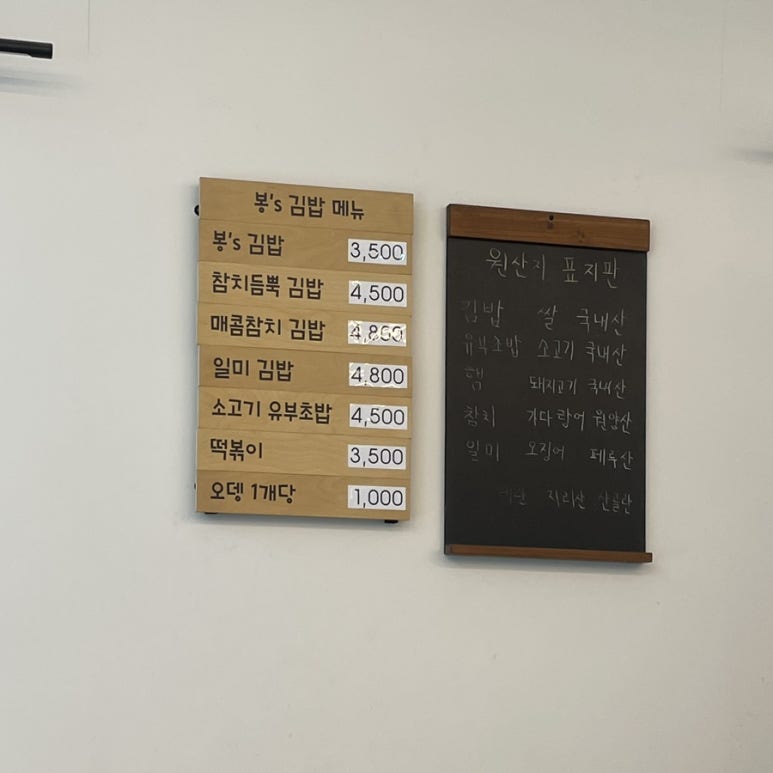 봉's 김밥 메뉴
봉's 김밥 3,500
참치듬뿍 김밥 4,500
매콤참치 김밥 4,800
일미 김밥 4,800
소고기 유부초밥 4,500
떡볶이 3,500
오뎅 1개당 1,000
원산지 표지판
김밥 쌀 국내산
유부초밥 소고기 국내산
햄 돼지고기 국내산
참치 가다랑어 원양산
일미 오징어 페루산
계란 지리산 산골란